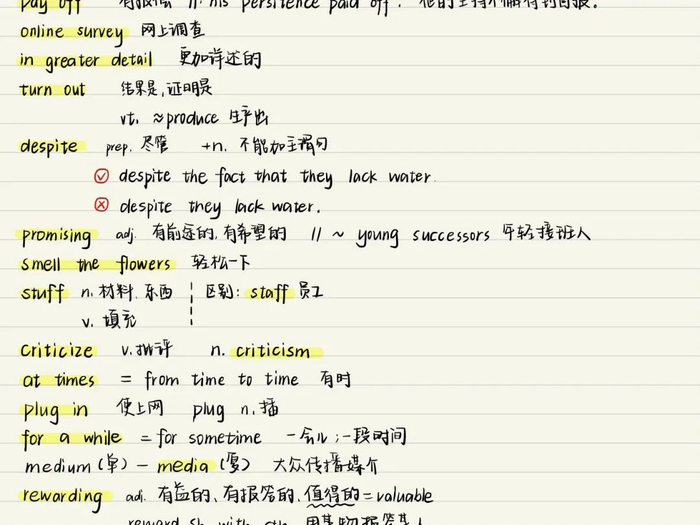 pay off 有报偿 // his persitence paid off. 他的坚持不懈得到回报。
online survey 网上调查
in greater detail 更加详述的
turn out 结果是,证明是
vt. ≈produce 生产出
despite prep. 尽管 +n. 不能加主谓句
despite the fact that they lack water.
despite they lack water.
promising adj. 有前途的,有希望的 // ~ young successors 年轻接班人
smell the flowers 轻松一下
stuff n. 材料.东西 区别: staff 员工
v. 填充
criticize v.批评 n. criticism
at times = from time to time 有时
plug in 使上网 plug n.插
for a while = for sometime 一会儿;一段时间
medium(单) - media(复) 大众传播媒介
rewarding adj. 有益的、有报答的,值得的=valuable
reward sb with sth 用某物报答某人